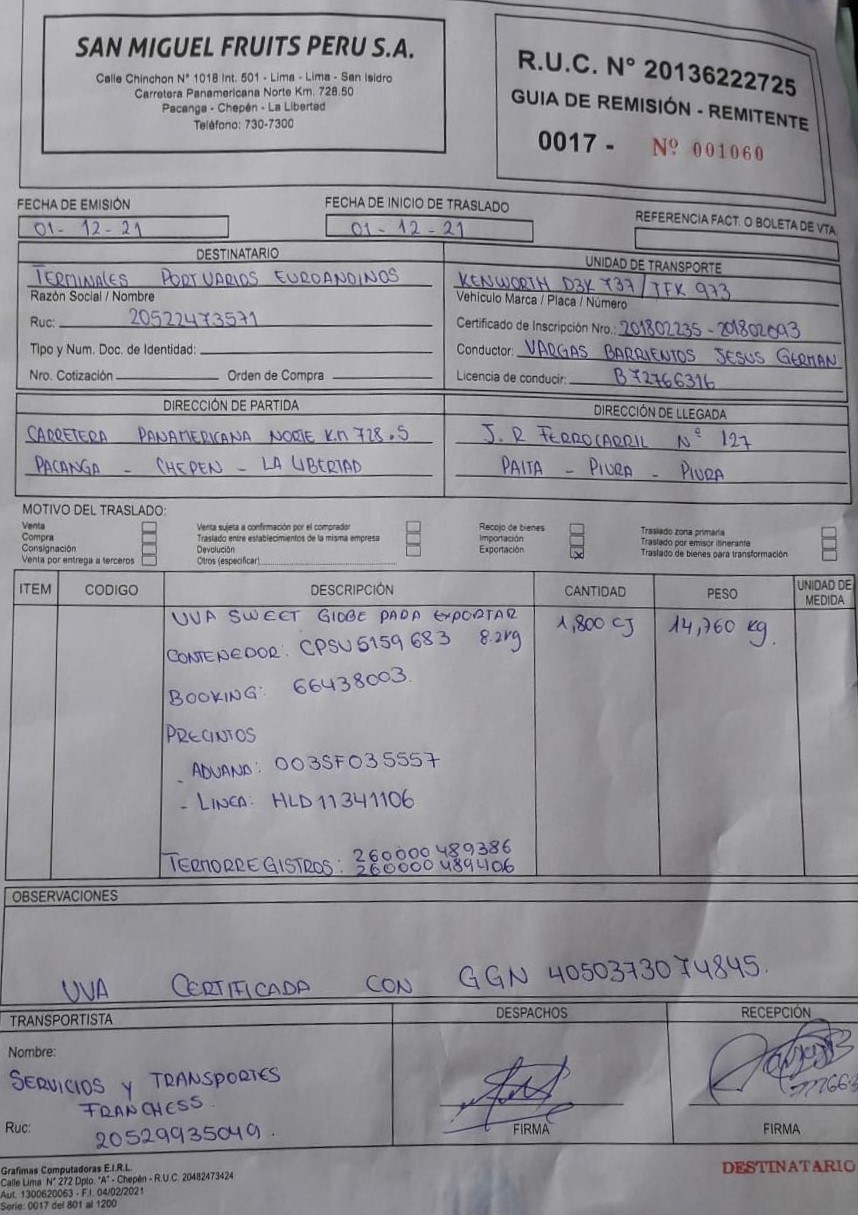 SAN MIGUEL FRUITS PERU S.A.
Calle Chinchon N° 1018 Int. 501 - Lima - Lima - San Isidro
Carretera Panamericana Norte Km. 728.50
Pacanga - Chepén - La Libertad
Teléfono: 730-7300
R.U.C. N° 20136222725
GUIA DE REMISIÓN - REMITENTE
0017 - Nº 001060
FECHA DE EMISIÓN
01-12-21
FECHA DE INICIO DE TRASLADO
01-12-21
REFERENCIA FACT. O BOLETA DE VTA.
DESTINATARIO
TERMINALES PORTUARIOS EUROANDINOS
Razón Social / Nombre
Ruc: 20522473571
Tipo y Num. Doc. de Identidad:
Nro. Cotización Orden de Compra
UNIDAD DE TRANSPORTE
KENWORTH D3K 737 / TFK 973
Vehículo Marca / Placa / Número
Certificado de Inscripción Nro.: 201802235 - 201802093
Conductor: VARGAS BARRIENTOS JESUS GERMAN
Licencia de conducir: B72766316
DIRECCIÓN DE PARTIDA
CARRETERA PANAMERICANA NORTE Km 728.5
PACANGA - CHEPEN - LA LIBERTAD
DIRECCIÓN DE LLEGADA
J.R FERROCARRIL Nº 127
PAITA - PIURA - PIURA
MOTIVO DEL TRASLADO:
Venta
Compra
Consignación
Venta por entrega a terceros
Venta sujeta a confirmación por el comprador
Traslado entre establecimientos de la misma empresa
Devolución
Otros (especificar)
Recojo de bienes
Importación
Exportación X
Traslado zona primaria
Traslado por emisor itinerante
Traslado de bienes para transformación
ITEM CODIGO DESCRIPCIÓN CANTIDAD PESO UNIDAD DE MEDIDA
UVA SWEET GLOBE PARA EXPORTAR 1,800 CJ 14,760 kg.
CONTENEDOR: CPSU5159683 8.2kg
BOOKING: 66438003.
PRECINTOS
- ADUANA: 003SF035557
- LINEA: HLD11341106
TERMORREGISTROS: 260000489386
260000489406
OBSERVACIONES
UVA CERTIFICADA CON GGN 4050373074845.
TRANSPORTISTA
Nombre:
SERVICIOS Y TRANSPORTES
FRANCHESS.
Ruc: 20529935049.
DESPACHOS
FIRMA
RECEPCIÓN
FIRMA
Grafimas Computadoras E.I.R.L.
Calle Lima N° 272 Dpto. "A" - Chepén - R.U.C. 20482473424
Aut. 1300620063 - F.I. 04/02/2021
Serie: 0017 del 801 al 1200
DESTINATARIO